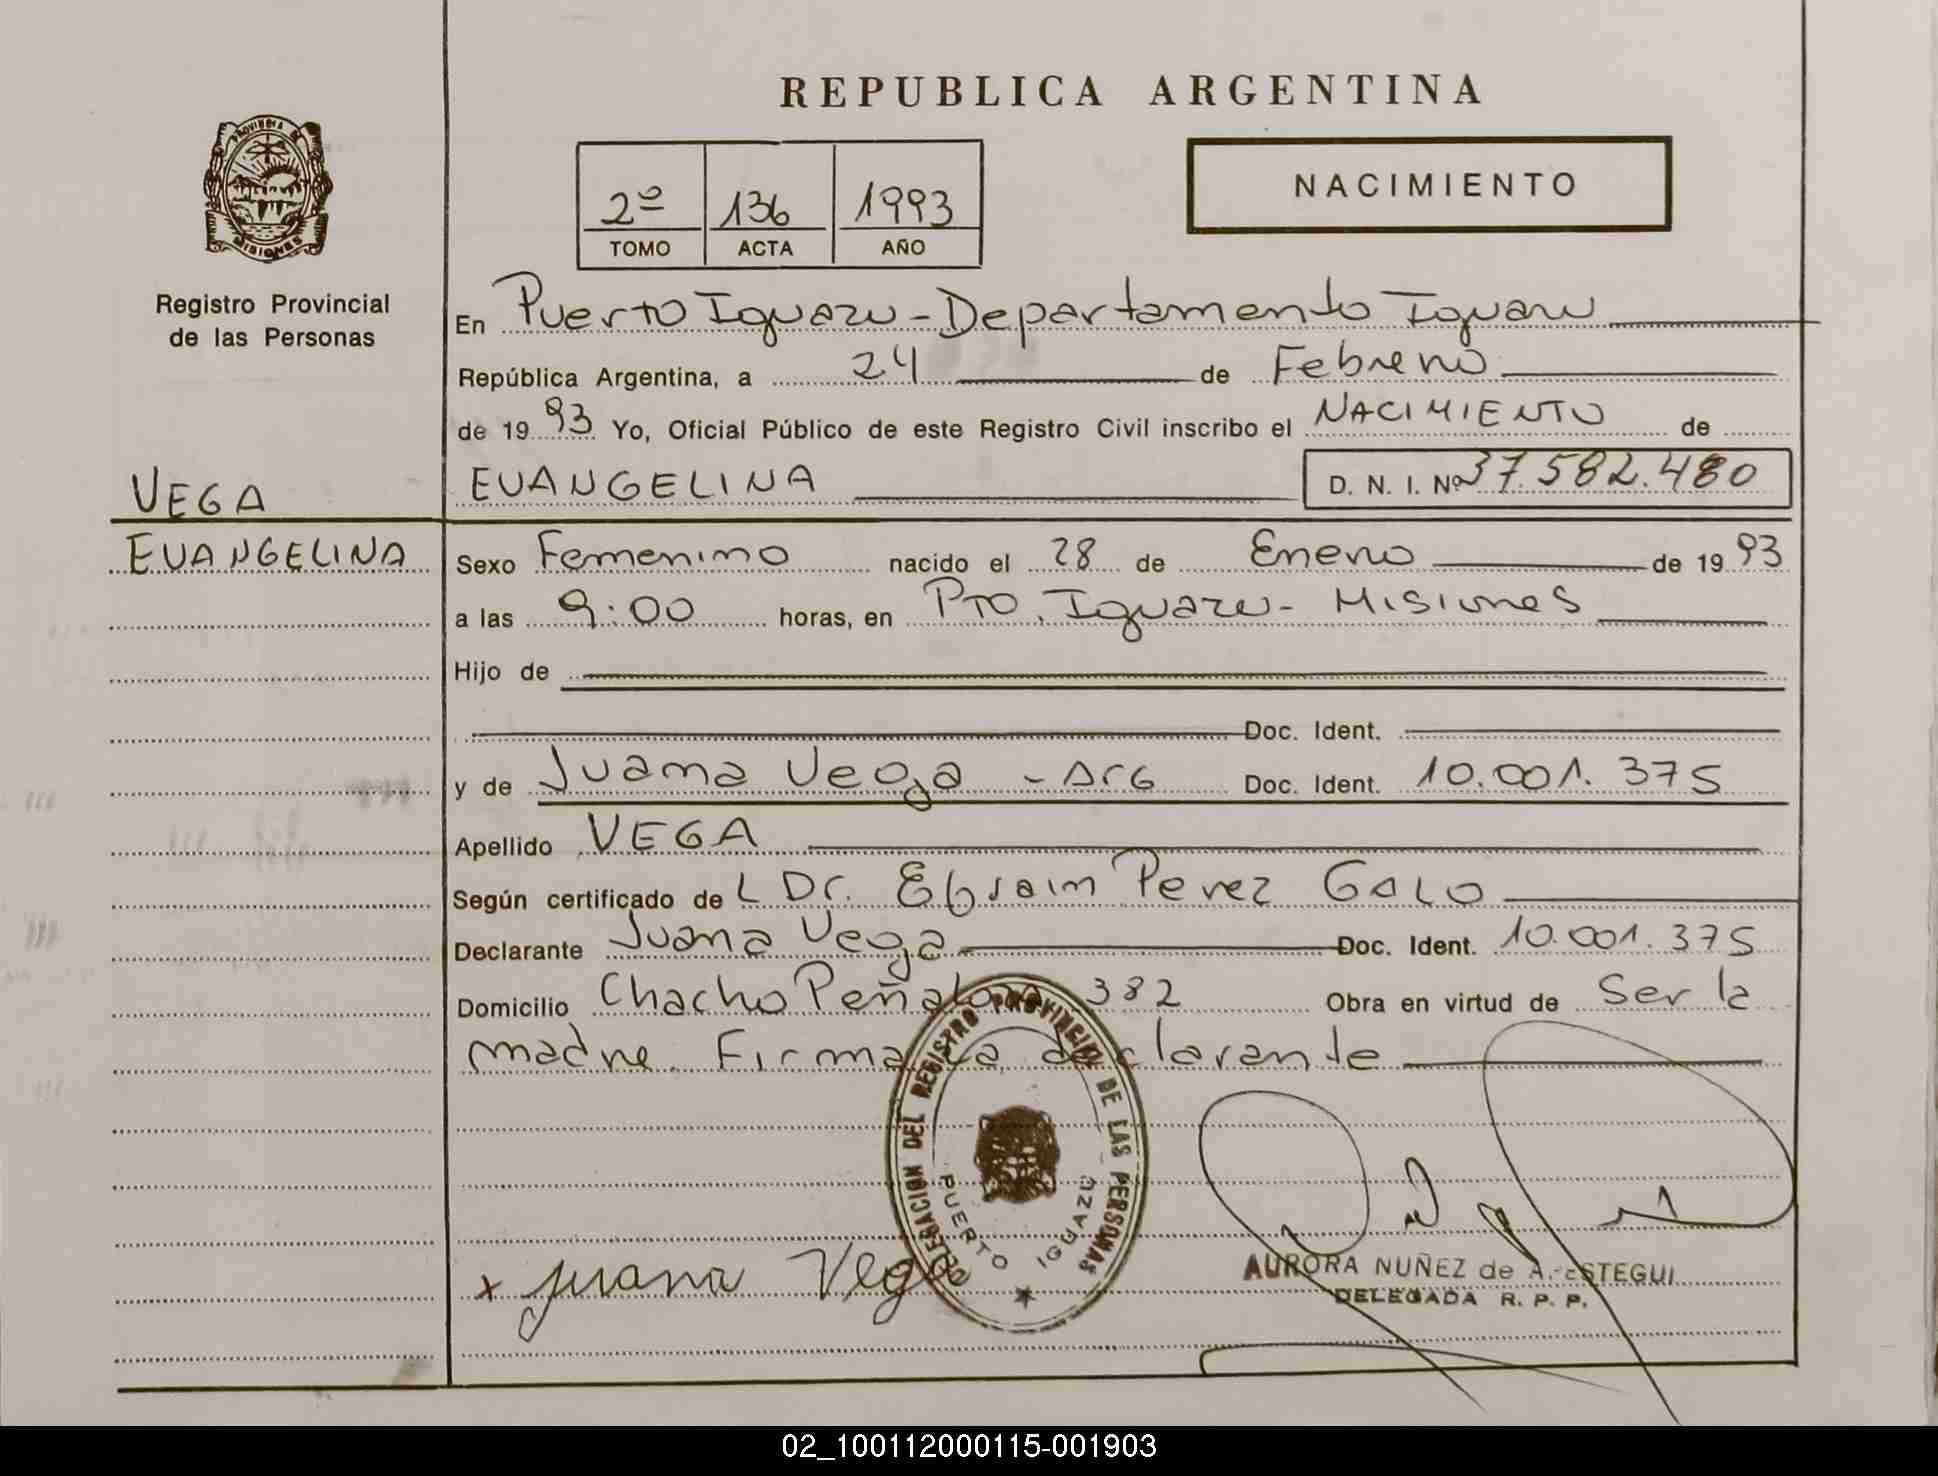 REPUBLICA ARGENTINA
PROVINCIA DE
MISIONES
Registro Provincial
de las Personas
2º 136 1993
TOMO ACTA AÑO
NACIMIENTO
En Puerto Iguazu - Departamento Iguazu
República Argentina, a 24 de Febrero
de 1993 Yo, Oficial Público de este Registro Civil inscribo el NACIMIENTO de
VEGA
EVANGELINA D. N. I. Nº 37.582.480
EVANGELINA
Sexo Femenino nacido el 28 de Enero de 1993
a las 9:00 horas, en Pto. Iguazu - Misiones
Hijo de
Doc. Ident.
y de Juana Vega - Arg Doc. Ident. 10.001.375
Apellido VEGA
Según certificado de L Dr. Efraim Perez Galo
Declarante Juana Vega Doc. Ident. 10.001.375
Domicilio Chacho Peñaloza 382 Obra en virtud de Ser la
madre. Firma la declarante
DELEGACION DEL REGISTRO PROVINCIAL DE LAS PERSONAS
PUERTO IGUAZU
x Juana Vega
AURORA NUÑEZ de
DELEGADA R. P. P.
02_100112000115-001903